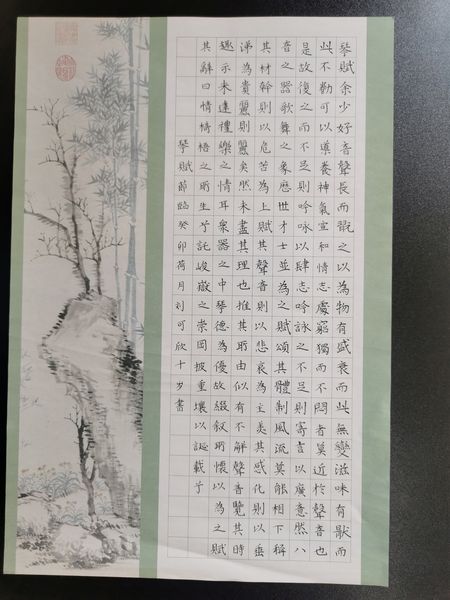 琴賦余少好音聲長而翫之以為物有盛衰而此無變滋味有猒而
此不勌可以導養神氣宣和情志處窮獨而不悶者莫近於聲音也
是故復之而不足則吟咏以肆志吟詠之不足則寄言以廣意然八
音之器歌舞之象歷世才士並為之賦頌其體制風流莫能相下稱
其材幹則以危苦為上賦其聲音則以悲哀為主美其感化則以垂
涕為貴麗則麗矣然未盡其理也推其所由似有不解聲音覽其時
趣亦未達禮樂之情耳衆器之中琴德為優故綴敍所懷以為之賦
其辭曰惜椅梧之所生兮託峻嶽之崇岡披重壤以誕載兮
琴賦節臨癸卯荷月刘可欣十岁書